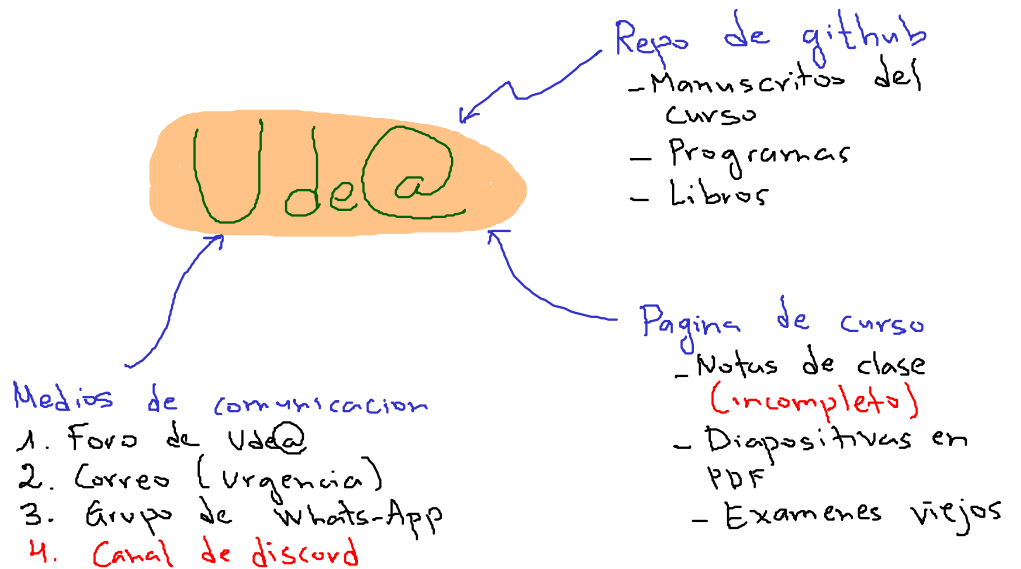 Ude@
Repo de github
- Manuscritos del
curso
- Programas
- Libros
Pagina de curso
- Notas de clase
(incompleto)
- Diapositivas en
PDF
- Examenes viejos
Medios de comunicacion
1. Foro de Ude@
2. Correo (Urgencia)
3. Grupo de Whats-App
4. Canal de discord